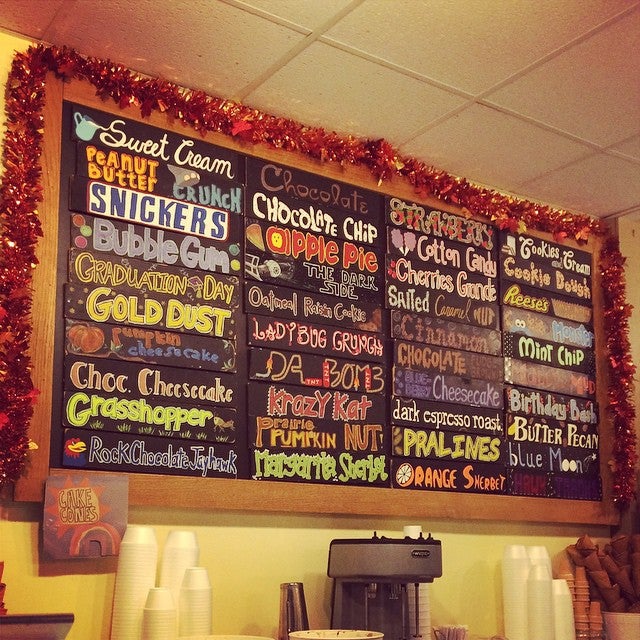 Sweet Cream
PEANUT
BUTTER
CRUNCH
SNICKERS
Bubble Gum
GRADUATION DAY
GOLD DUST
Pumpkin
cheesecake
Choc. Cheesecake
Grasshopper
Rock Chocolate Jayhawk
Chocolate
CHOCOLATE CHIP
apple Pie
THE DARK
SIDE
Oatmeal Raisin Cookie
LADYBUG CRUNCH
DA BOMB
TNT TNT
Krazy Kat
prairie
PUMPKIN NUT
Margarita Sherbet
STRAWBERRY
Cotton Candy
Cherries Grande
SALTED Caramel MUD
Cinnamon
CHOCOLATE
BLUE-
BERRY Cheesecake
dark espresso roast
PRALINES
ORANGE SHERBET
Cookies and Cream
Cookie Dough
Reese's
Monster
Mint CHiP
MUD
Birthday Bash
BUTTER PECAN
blue Moon
CAKE
CONES